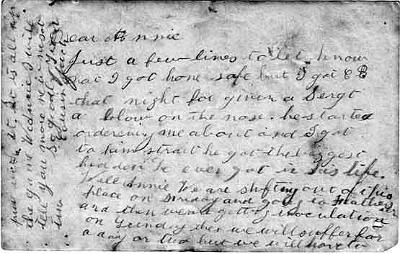 Dear Annie
Just a few lines to let know
that I got home safe but I got CB
that night for given a Sergt
a blow on the nose. he started
ordering me about and I got
to him strait he got the biggest
hidden he ever got in his life.
Well Annie We are shifting out of this
place on Sunday and going to
and then we are getting inoculation
on Sunday then we will suffer for
a day or two but we will have to
it. It is all
the game
tell you more next
So goodbye from
Cousin